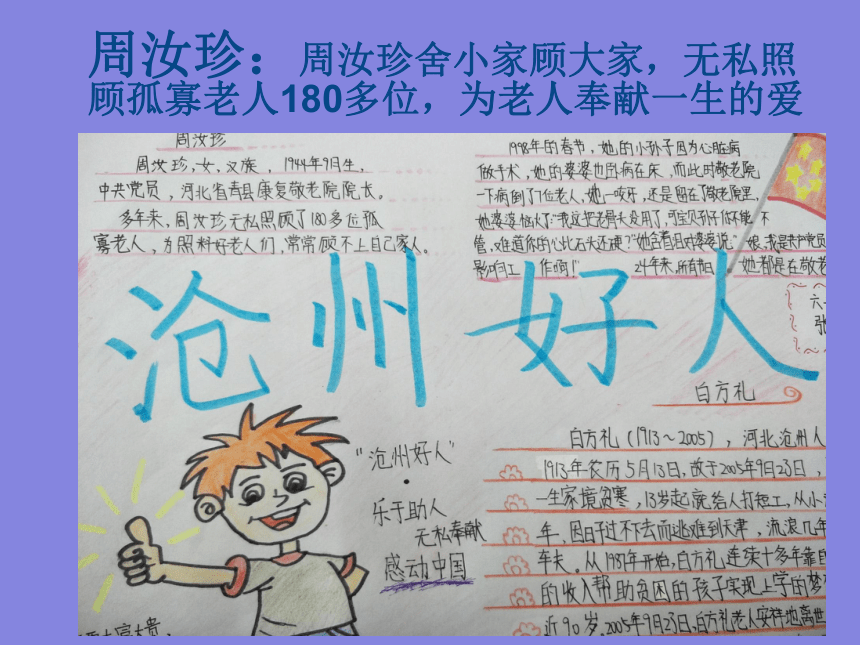 周汝珍：周汝珍舍小家顾大家，无私照
顾孤寡老人180多位，为老人奉献一生的爱
周汝珍
周汝珍，女，汉族，1944年9月生，
中共党员，河北省青县康复敬老院院长。
多年来，周汝珍无私照顾了180多位孤
寡老人，为照料好老人们，常常顾不上自己家人。
1998年的春节，她的小孙子因为心脏病
做手术，她的婆婆也因病在床，而此时敬老院
一下病倒了7位老人，她一咬牙，还是留在了敬老院里，
她婆婆恼火了："我这把老骨头没用了，可宝贝孙子你不能不
管，难道你的心比石头还硬？"她含着泪对婆婆说："娘，我是共产党员
影响工作啊！" 24年来，所有节日，她都是在敬老
沧州好人
白方礼
白方礼（1913～2005），河北沧州人
1913年农历5月13日，故于2005年9月23日，
一生家境贫寒，13岁起就给人打短工，从小
年，因日子过不下去而逃难到天津，流浪几年
车夫。从1987年开始，白方礼连续十多年靠自
的收入帮助贫困的孩子实现上学的梦
近90岁。2005年9月23日，白方礼老人安祥地离世
"沧州好人"
乐于助人
无私奉献
感动中国
富大贵，